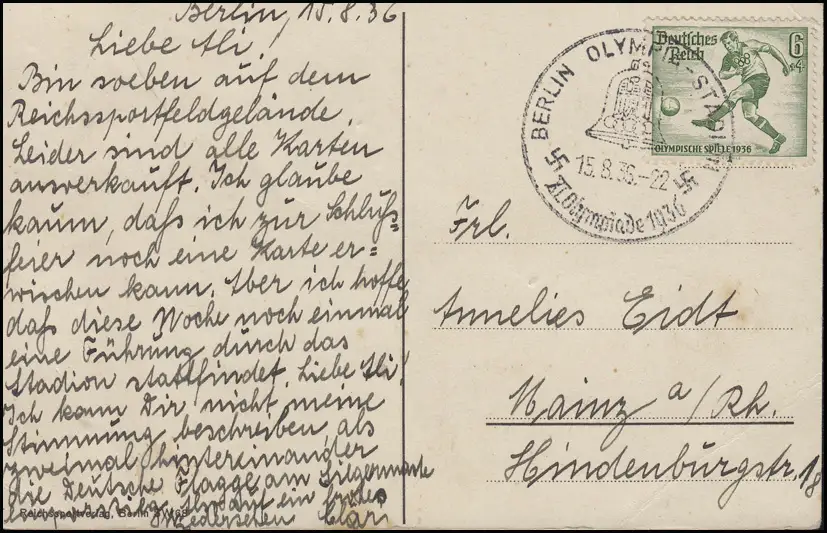 Berlin, 15.8.36
Liebe Ali!
Bin soeben auf dem
Reichssportfeldgelände.
Leider sind alle Karten
ausverkauft. Ich glaube
kaum, daß ich zur Schluß=
feier noch eine Karte er=
wischen kann. Aber ich hoffe
daß diese Woche noch einmal
eine Führung durch das
Stadion stattfindet. Liebe Ali!
Ich kann Dir nicht meine
Stimmung beschreiben als
zweimal hintereinander
die Deutsche Flagge am Siegermaste
auf ein frohes
Wiedersehen Clär
Reichssportverlag, Berlin
BERLIN OLYMPIA-STADION
15.8.36.-22
XI. Olympiade 1936
Deutsches
Reich
6
+4
OLYMPISCHE SPIELE 1936
Frl.
Annelies Eidt
Mainz a/Rh.
Hindenburgstr. 18